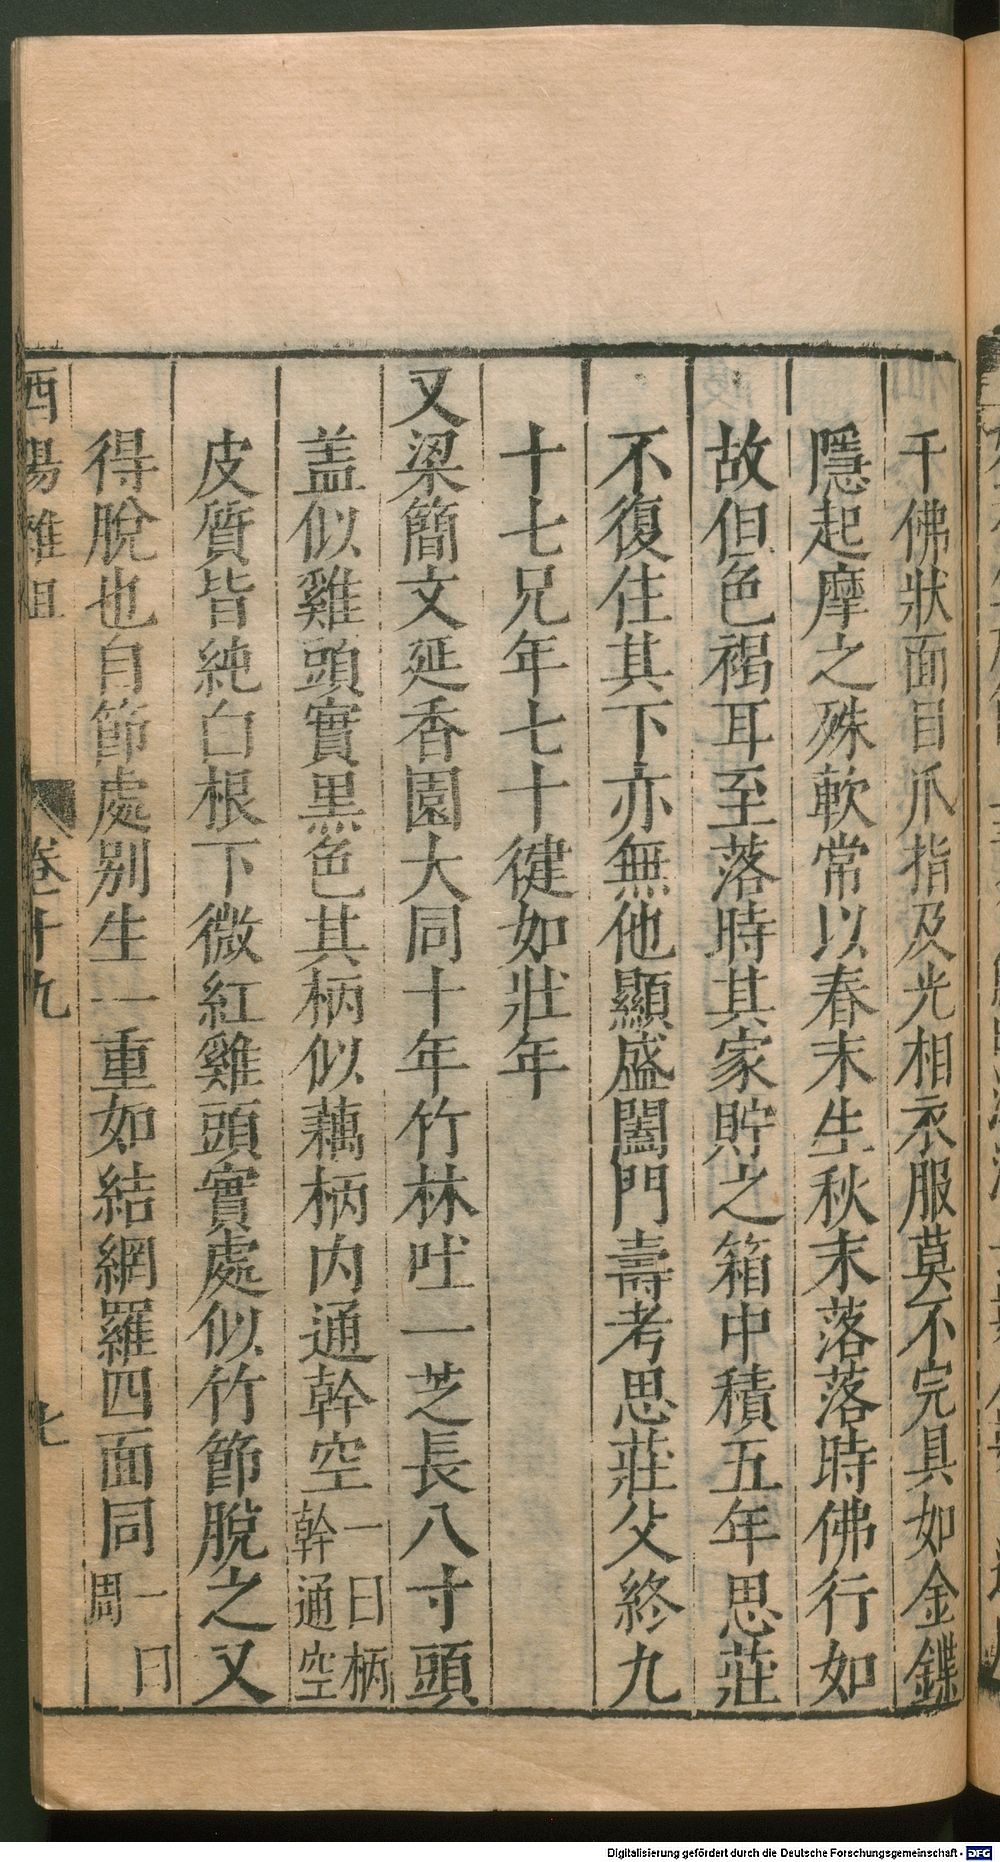 千佛狀面目爪指及光相衣服莫不完具如金鍱
隱起摩之殊軟常以春末生秋末落落時佛行如
故但色褐耳至落時其家貯之箱中積五年思莊
不復住其下亦無他顯盛闔門壽考思莊父終九
十七兄年七十健如壯年
又梁簡文延香園大同十年竹林吐一芝長八寸頭
盖似雞頭實黒色其柄似藕柄内通幹空一曰柄幹通空
皮質皆純白根下微紅雞頭實處似竹節脫之又
得脫也自節處别生一重如結網羅四面同一曰周
酉陽雜俎 卷十九
Digitalisierung gefördert durch die Deutsche Forschungsgemeinschaft - DFG